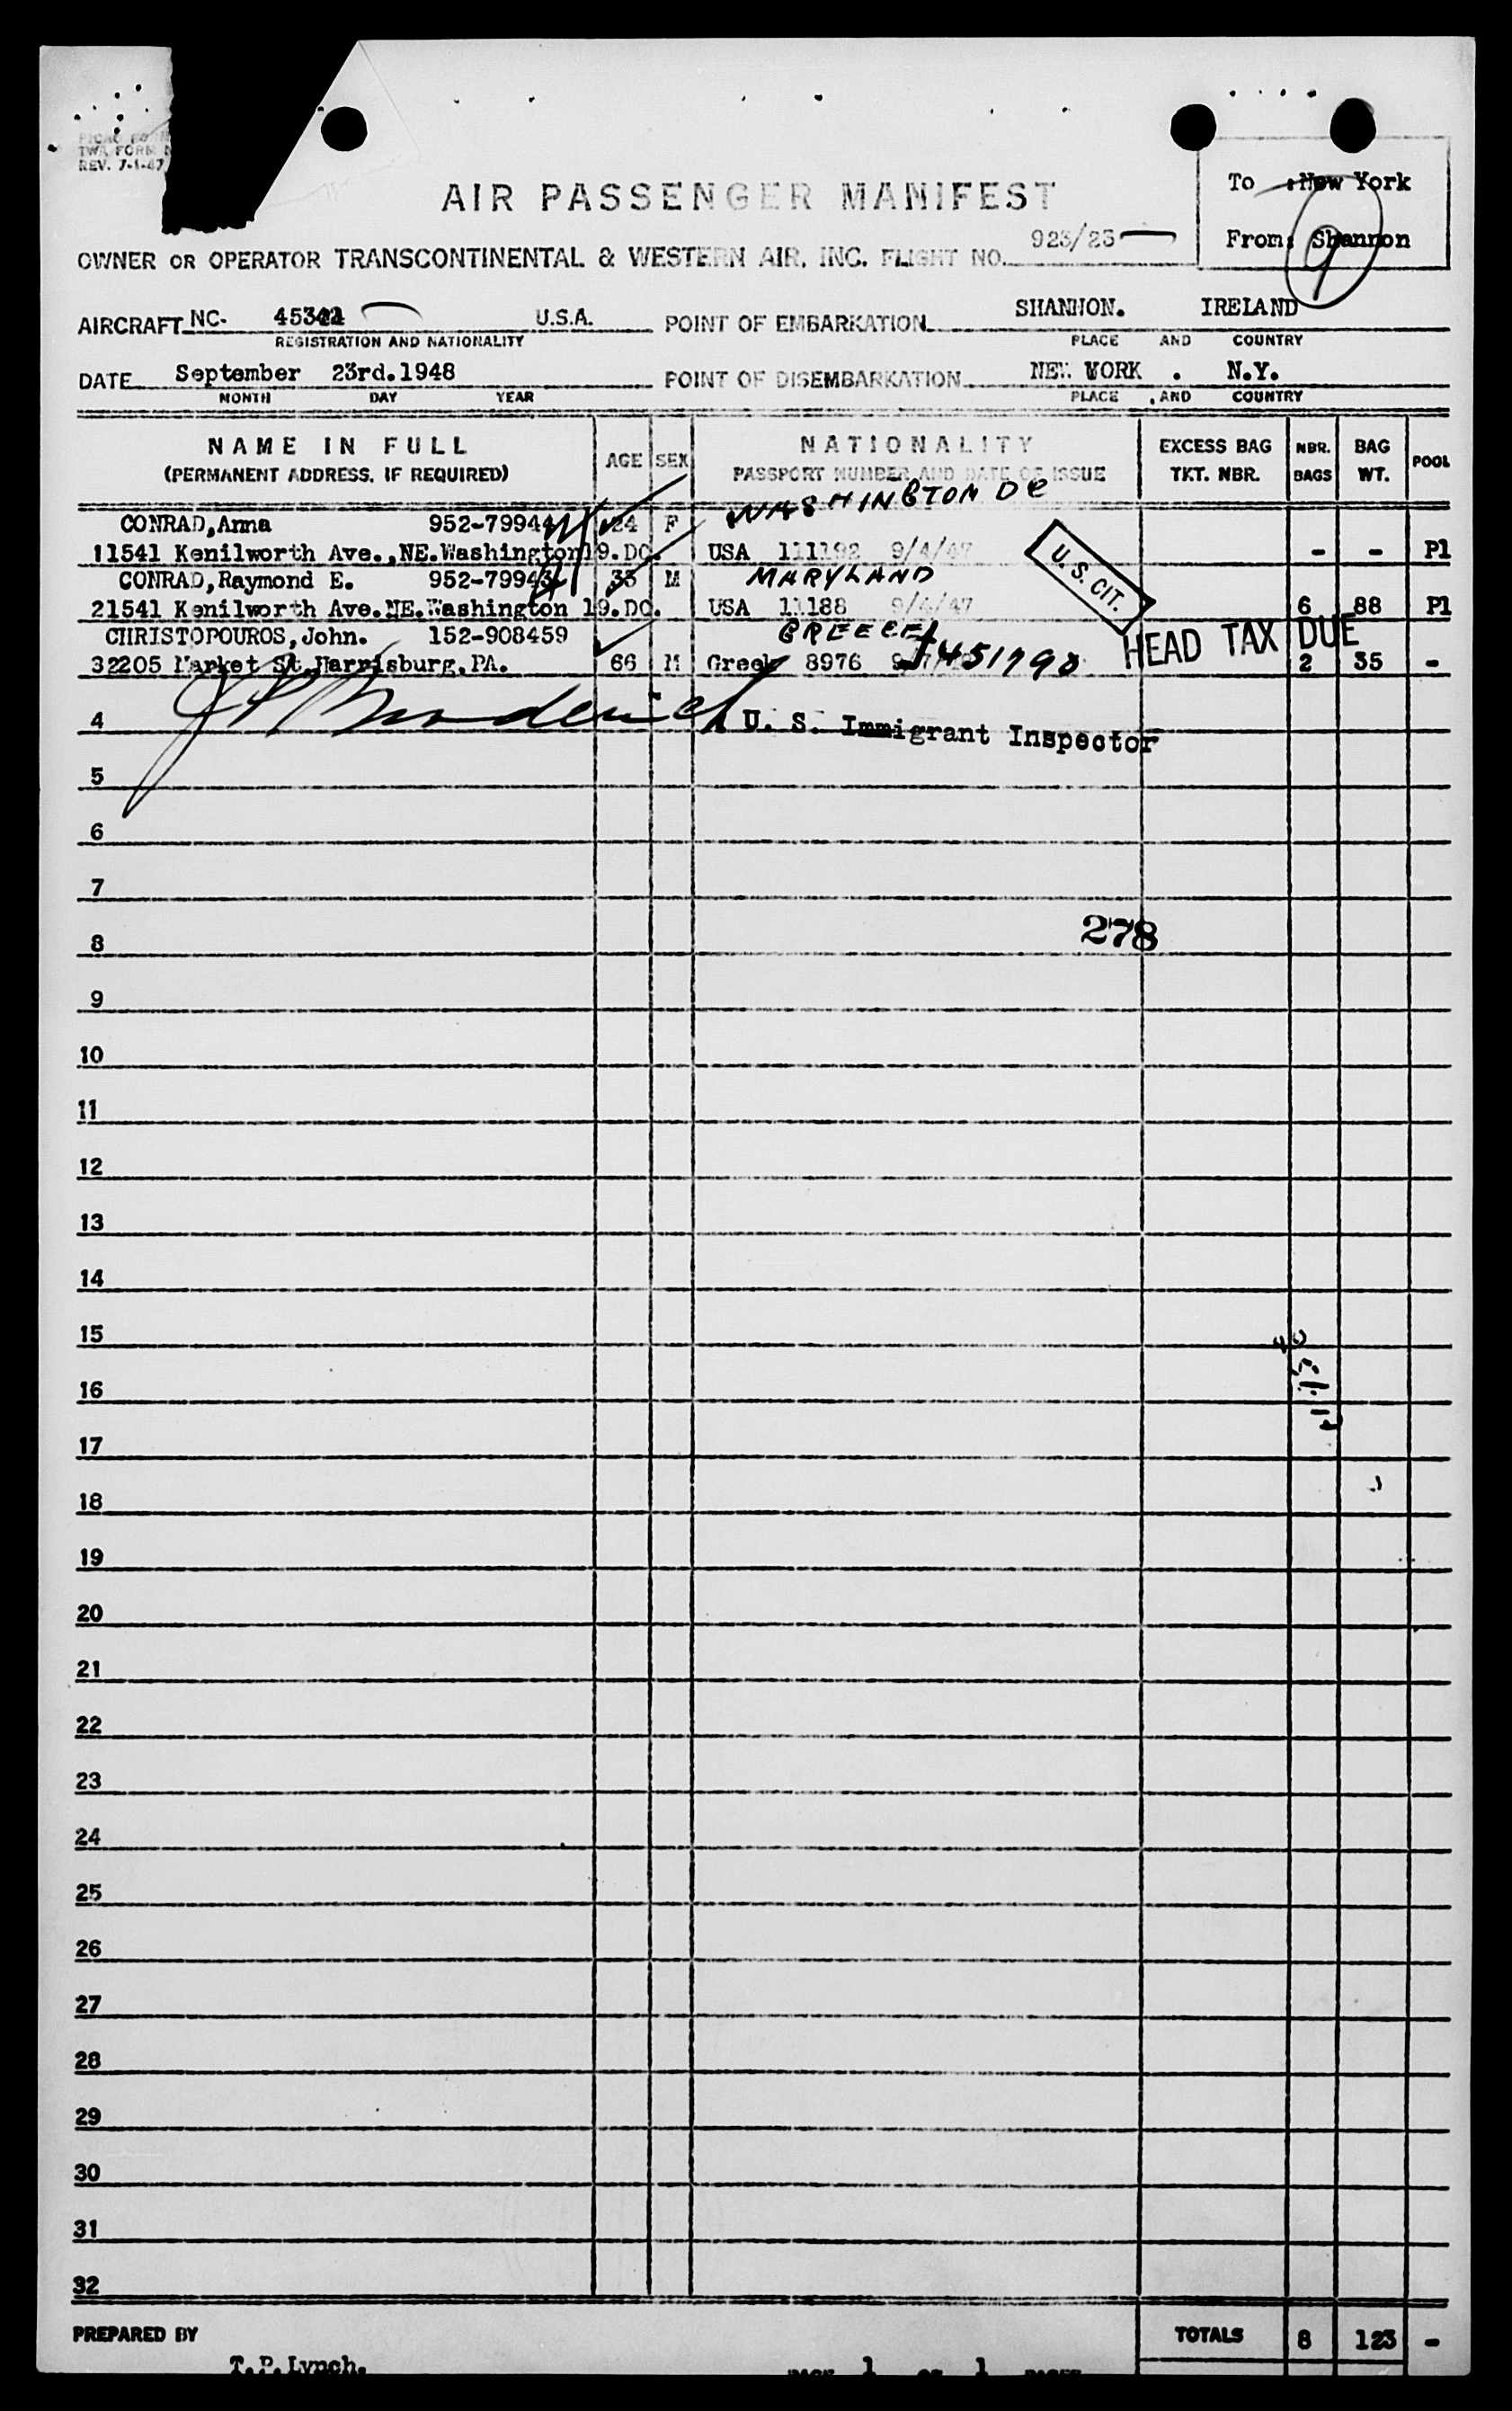 TWA FORM
REV. 7-1-47
AIR PASSENGER MANIFEST
To : New York
From: Shannon
9
OWNER OR OPERATOR TRANSCONTINENTAL & WESTERN AIR, INC. FLIGHT NO. 923/23
AIRCRAFT NC- U.S.A. POINT OF EMBARKATION SHANNON. IRELAND
REGISTRATION AND NATIONALITY PLACE AND COUNTRY
DATE September 23rd.1948 POINT OF DISEMBARKATION NEW YORK . N.Y.
MONTH DAY YEAR PLACE AND COUNTRY
NAME IN FULL AGE SEX NATIONALITY EXCESS BAG NBR. BAG POOL
(PERMANENT ADDRESS, IF REQUIRED) PASSPORT NUMBER AND DATE OF ISSUE TKT. NBR. BAGS WT.
WASHINGTON DC
CONRAD,Anna 952-79944 24 F
11541 Kenilworth Ave.,NE.Washington19.DC. USA 111192 9/4/47 - - P1
CONRAD,Raymond E. 952-79943 33 M MARYLAND
U. S. CIT.
21541 Kenilworth Ave.NE.Washington 19.DC. USA 11188 9/4/47 6 88 P1
CHRISTOPOUROS,John. 152-908459 GREECE
HEAD TAX DUE
32205 Market St.Harrisburg,PA. 66 M Greek 8976 2 35 -
451790
4 U. S. Immigrant Inspector
5
6
7
278
8
9
10
11
12
13
14
15
16
17
18
19
20
21
22
23
24
25
26
27
28
29
30
31
32
PREPARED BY TOTALS 8 123 -
T.P.Lynch. PAGE 1 OF 1 PAGES